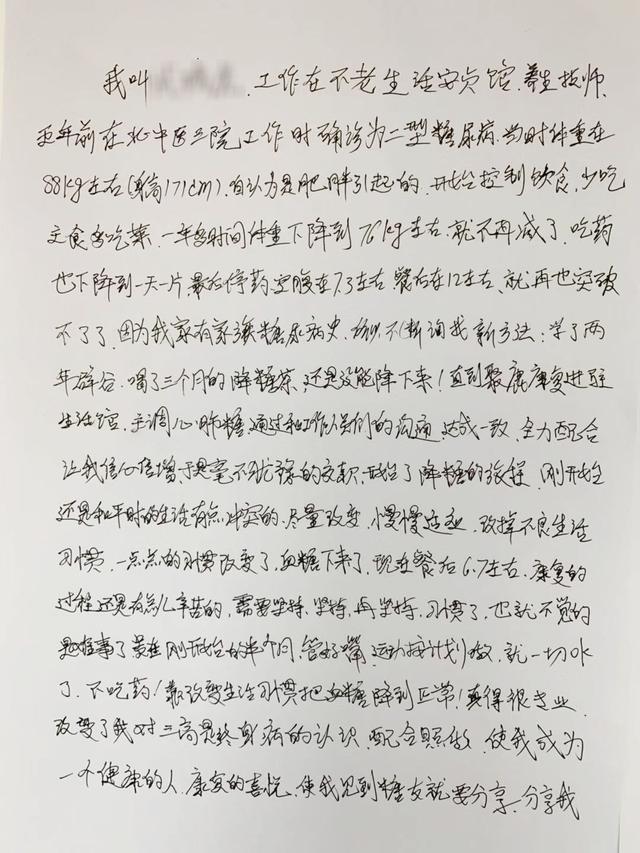 我叫 工作在不老生活安贞馆.养生技师.
五年前在北中医三院工作时确诊为二型糖尿病.当时体重在
88kg左右(身高171cm).自认为是肥胖引起的.开始控制饮食,少吃
主食多吃菜.一年多时间体重下降到76kg左右.就不再减了.吃药
也下降到一天一片.最后停药空腹在7.3左右餐后在12左右.就再也突破
不了了.因为我家有家族糖尿病史.所以不断询找新方法:学了两
年辟谷.喝了三个月的降糖茶.还是没能降下来!直到聚鹿康复进驻
生活馆.主调心 糖.通过和工作人员们的沟通.达成一致.全力配合
让我信心倍增于是毫不犹豫的交款.开始了降糖的旅程.刚开始
还是和平时的生活有点冲突的.尽量改变.慢慢适应.改掉不良生活
习惯.一点点的习惯改变了.血糖下来了.现在餐后6.7左右.康复的
过程还是有点儿辛苦的.需要坚持.坚持.再坚持.习惯了.也就不觉的
是难事了.最难刚开始的半个月.管好嘴.运动按计划做.就一切ok
了.不吃药!靠改变生活习惯把血糖降到正常!真得很专业.
改变了我对三高是终身病的认识.配合照做.使我成为
一个健康的人.康复的喜悦.使我见到糖友就要分享.分享我